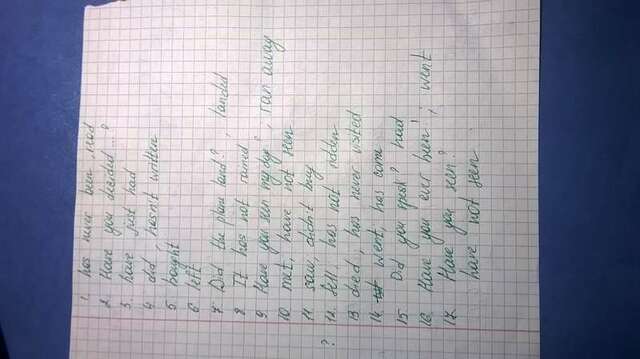 1. has never been, read
2. Have you decided ...?
3. have just had
4. did, hasn't written
5. bought
6. left
7. Did the plane land?, landed
8. It has not rained
9. Have you seen my dog, ran away
10. met, have not seen
11. saw, didn't buy
12. fell, has not ridden
13. died, has never visited
14. went, has come
15. Did you speak? had
16. Have you ever been!, went
17. Have you seen?
have not seen
?